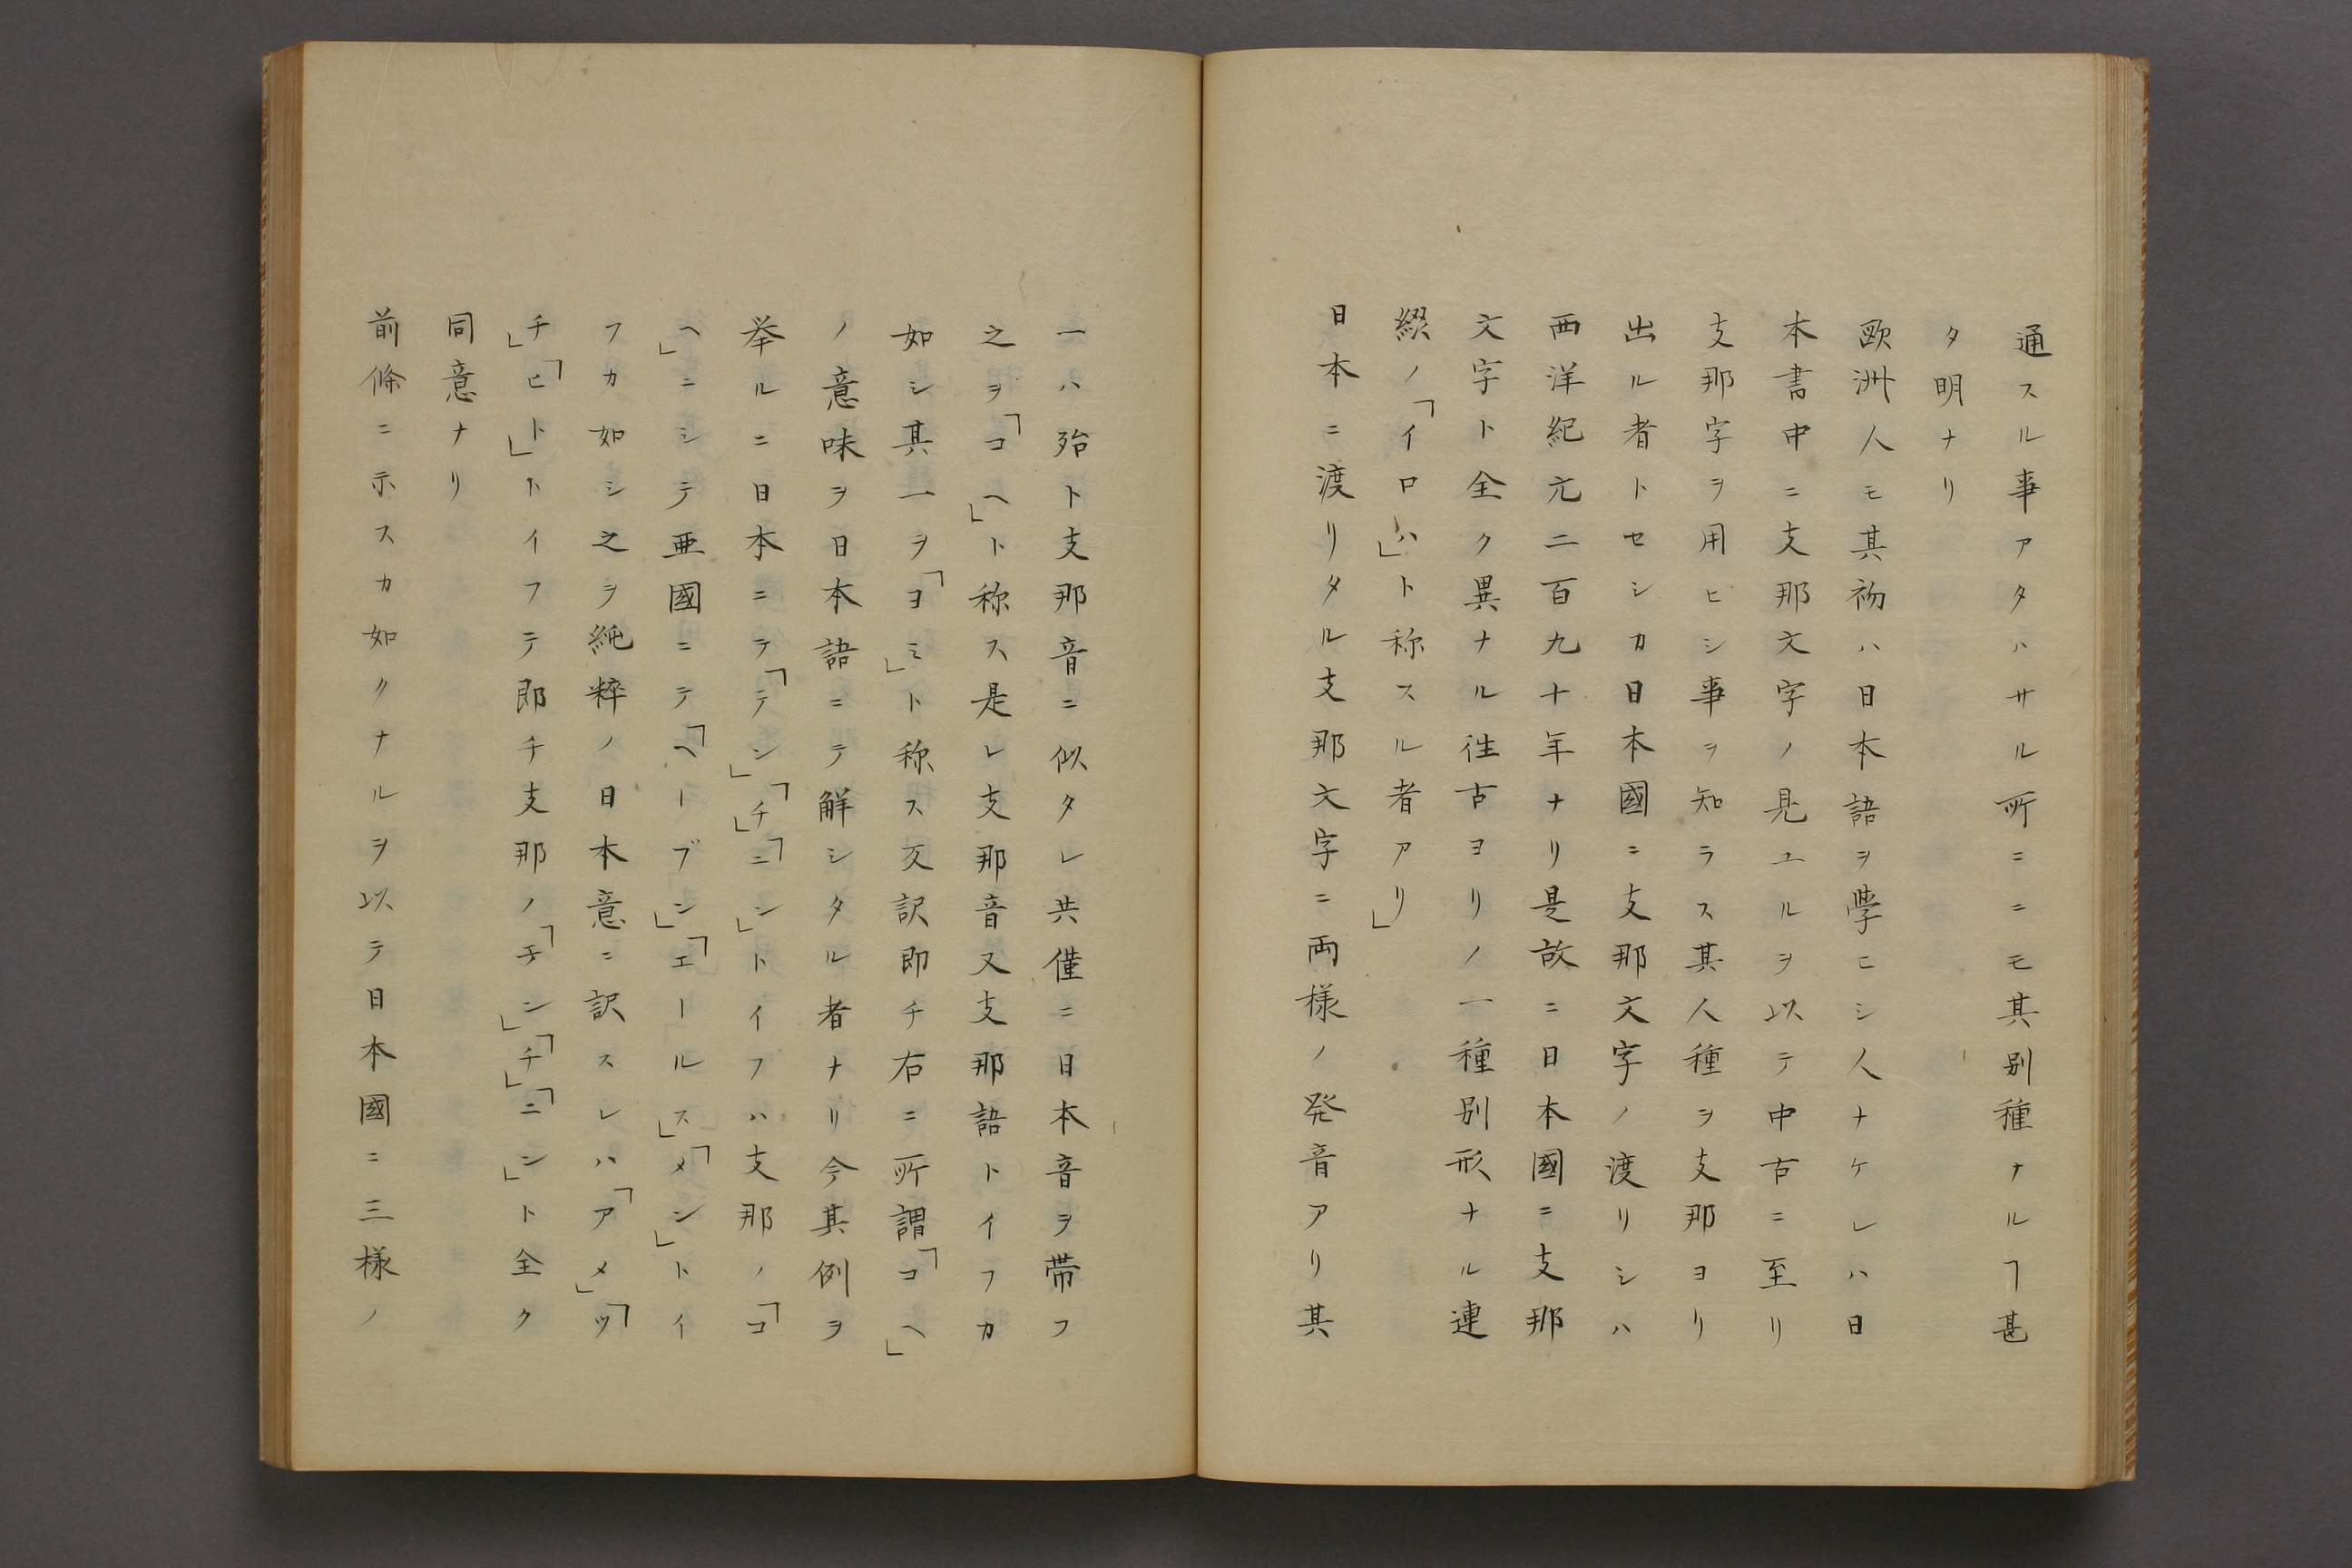 通スル事アタハサル所ニニモ其別種ナルヿ甚
タ明ナリ
歐洲人モ其初ハ日本語ヲ學ヒシ人ナケレハ日
本書中ニ支那文字ノ見ユルヲ以テ中古ニ至リ
支那字ヲ用ヒシ事ヲ知ラス其人種ヲ支那ヨリ
出ル者トセシカ日本國ニ支那文字ノ渡リシハ
西洋紀元二百九十年ナリ是故ニ日本國ニ支那
文字ト全ク異ナル往古ヨリノ一種別形ナル連
綴ノ「イロハ」ト称スル者アリ」
日本ニ渡リタル支那文字ニ両様ノ発音アリ其
一ハ殆ト支那音ニ似タレ共僅ニ日本音ヲ帯フ
之ヲ「コヘ」ト称ス是レ支那音又支那語トイフカ
如シ其一ヲ「ヨミ」ト称ス反訳即チ右ニ所謂「コヘ」
ノ意味ヲ日本語ニテ解シタル者ナリ今其例ヲ
挙ルニ日本ニテ「テン」「チ」「ニン」トイフハ支那ノ「コ
ヘ」ニシテ亜國ニテ「ヘーブン」「エールス」「メン」トイ
フカ如シ之ヲ純粋ノ日本意ニ訳スレハ「アメ」「ツ
チ」「ヒト」トイフテ即チ支那ノ「チン」「チ」「ニン」ト全ク
同意ナリ
前條ニ示スカ如クナルヲ以テ日本國ニ三様ノ